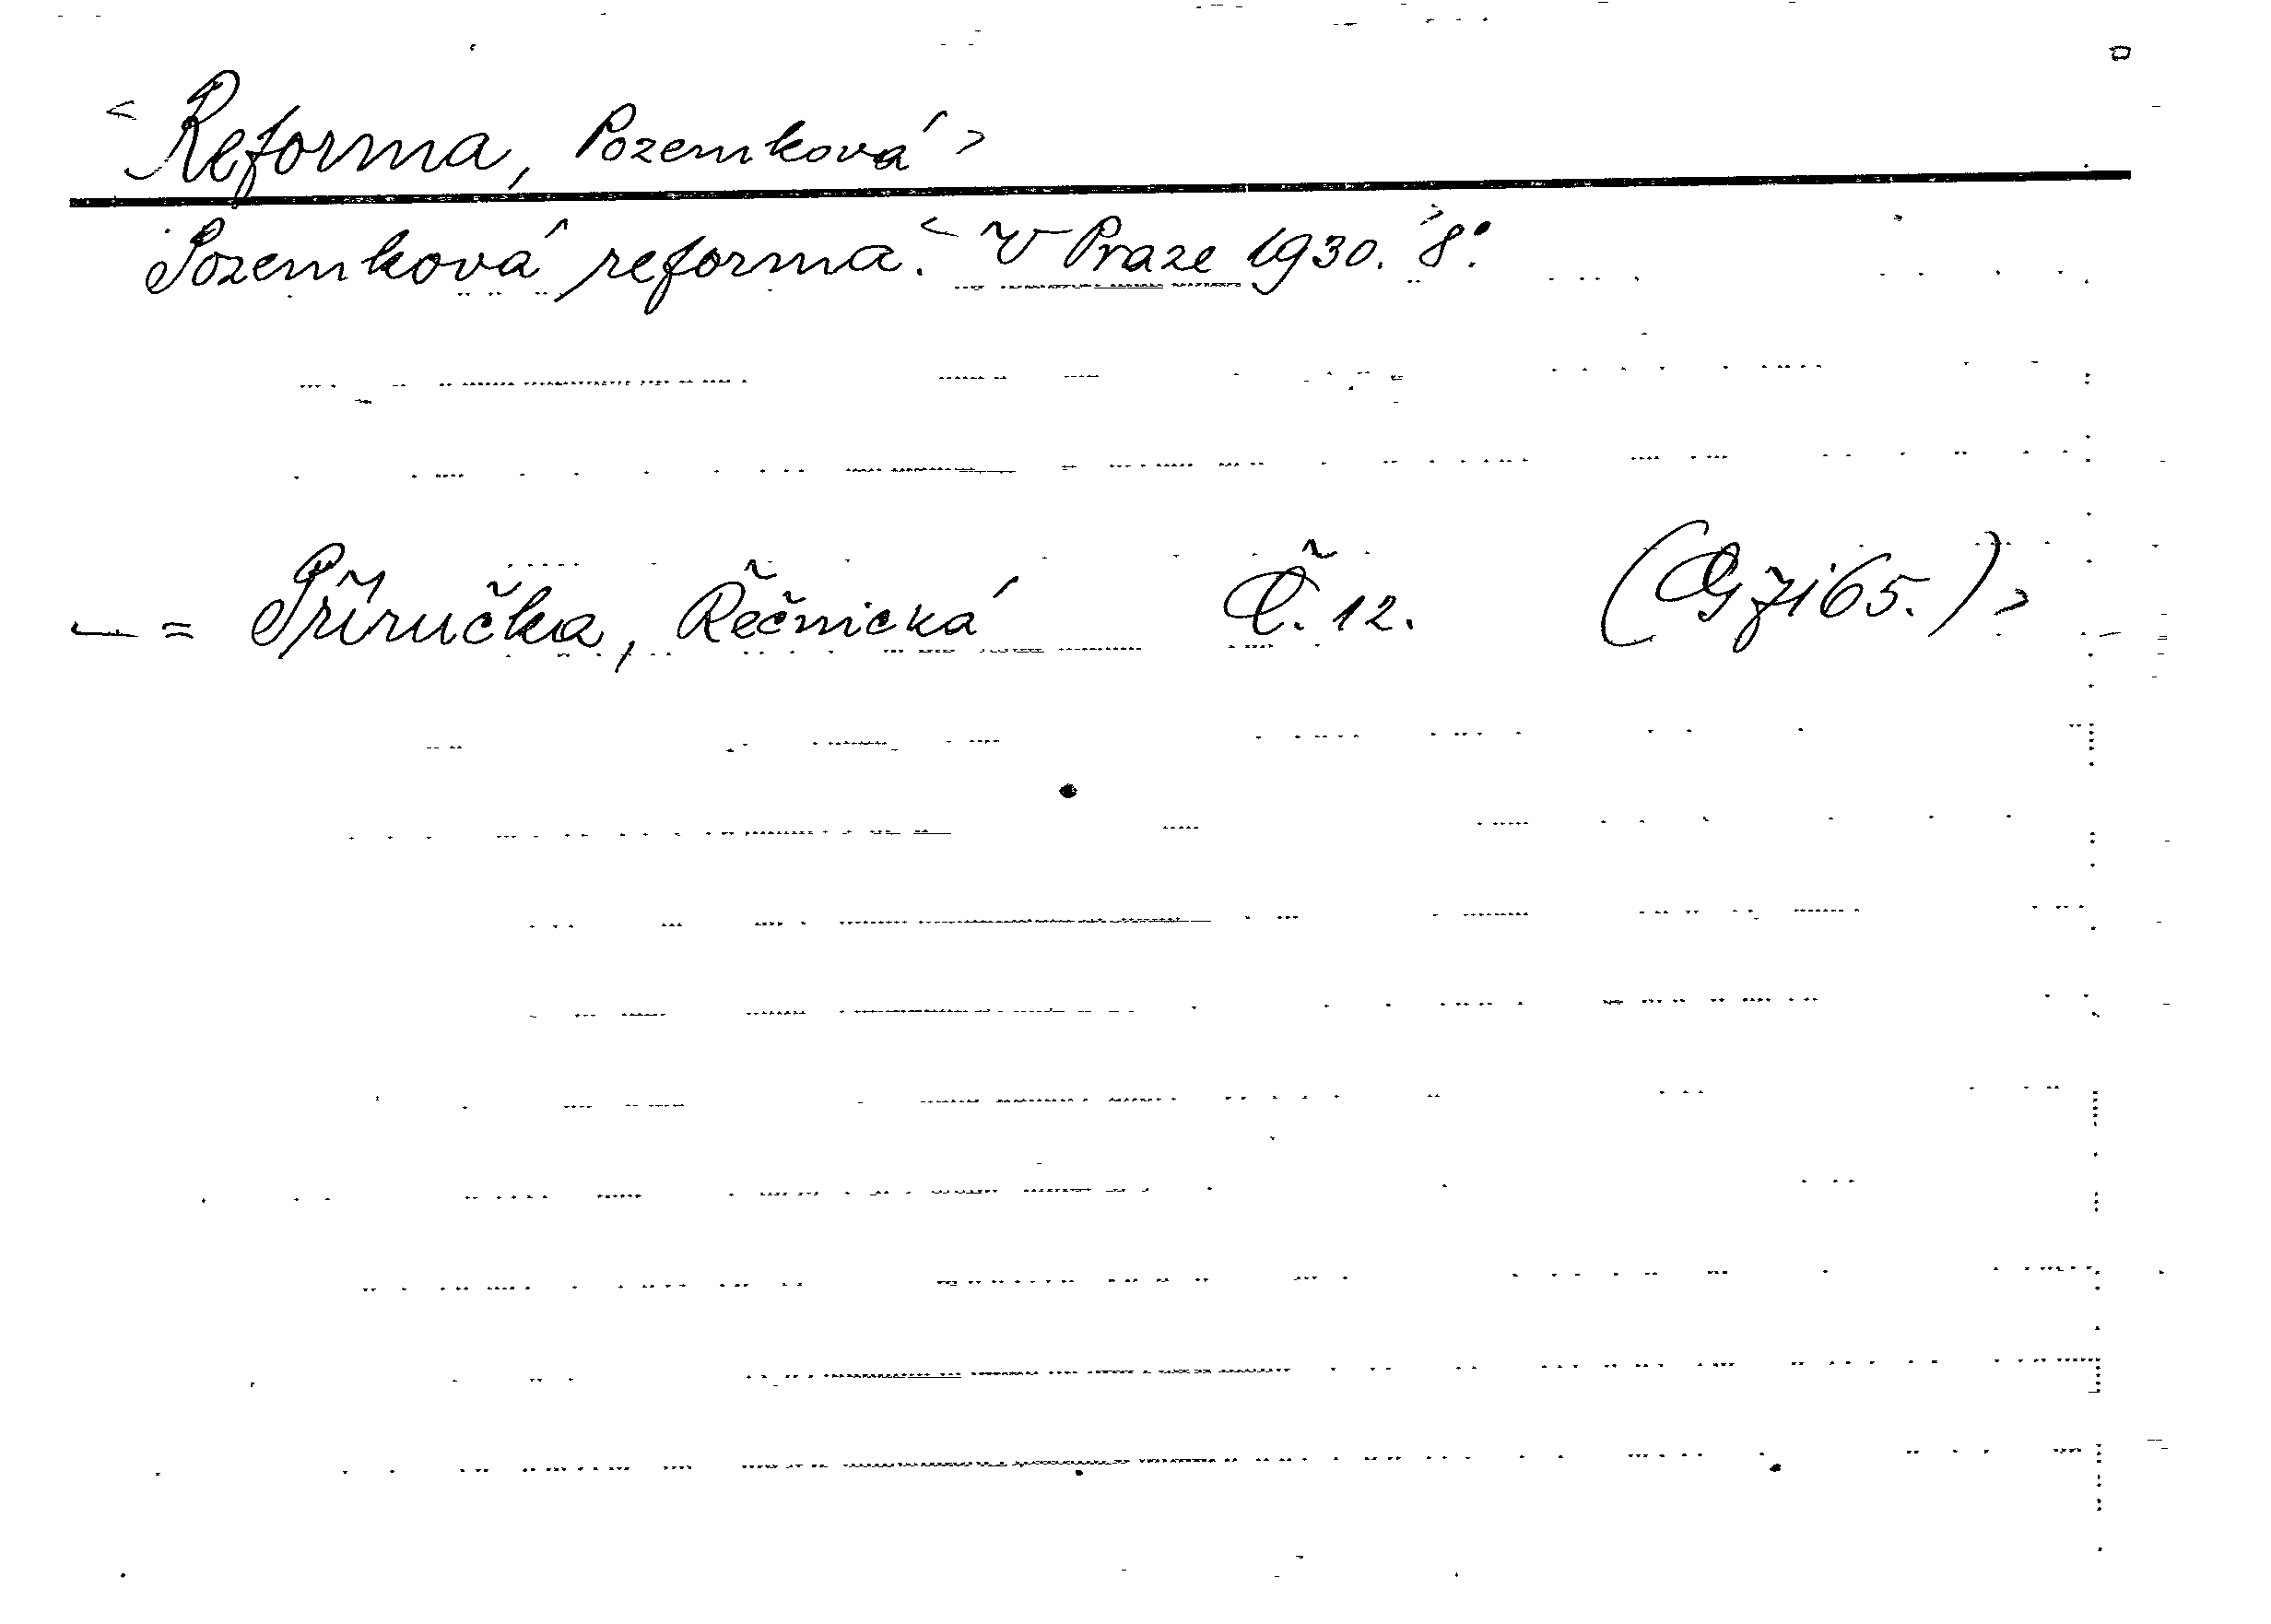 < Reforma, Pozemková >
Pozemková reforma. < V Praze 1930. > 8°.
— = Příručka, Řečnická Č. 12. (G ži 65.) >